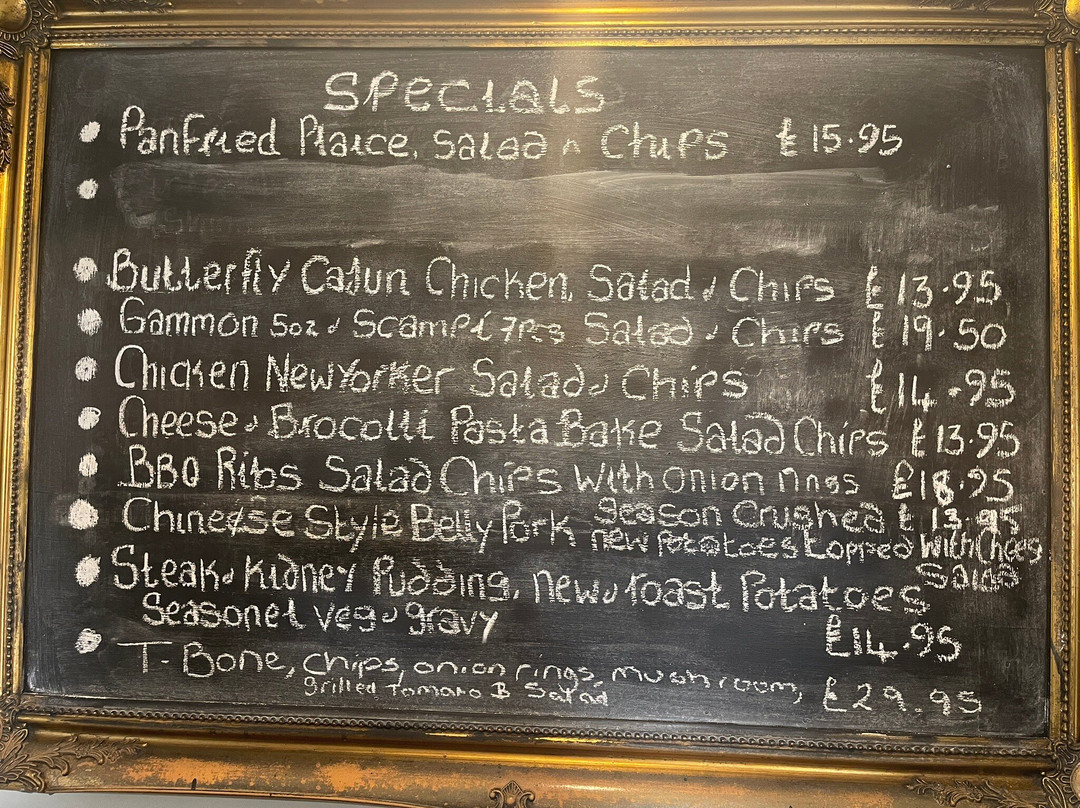 Specials
Panfried Plaice, Salad n Chips £15.95
Butterfly Cajun Chicken, Salad, Chips £13.95
Gammon 5oz, Scampi 7pcs Salad, Chips £19.50
Chicken NewYorker Salad, Chips £14.95
Cheese, Brocolli Pasta Bake Salad Chips £13.95
BBQ Ribs Salad Chips With onion rings £18.95
Chinese Style Belly Pork Season Crushed £13.95
new potatoes topped with Chees
Salad
Steak, Kidney Pudding, New, roast Potatoes
Seasonel veg, gravy £14.95
T-Bone, chips, onion rings, mushroom, £29.95
grilled Tomato & Salad